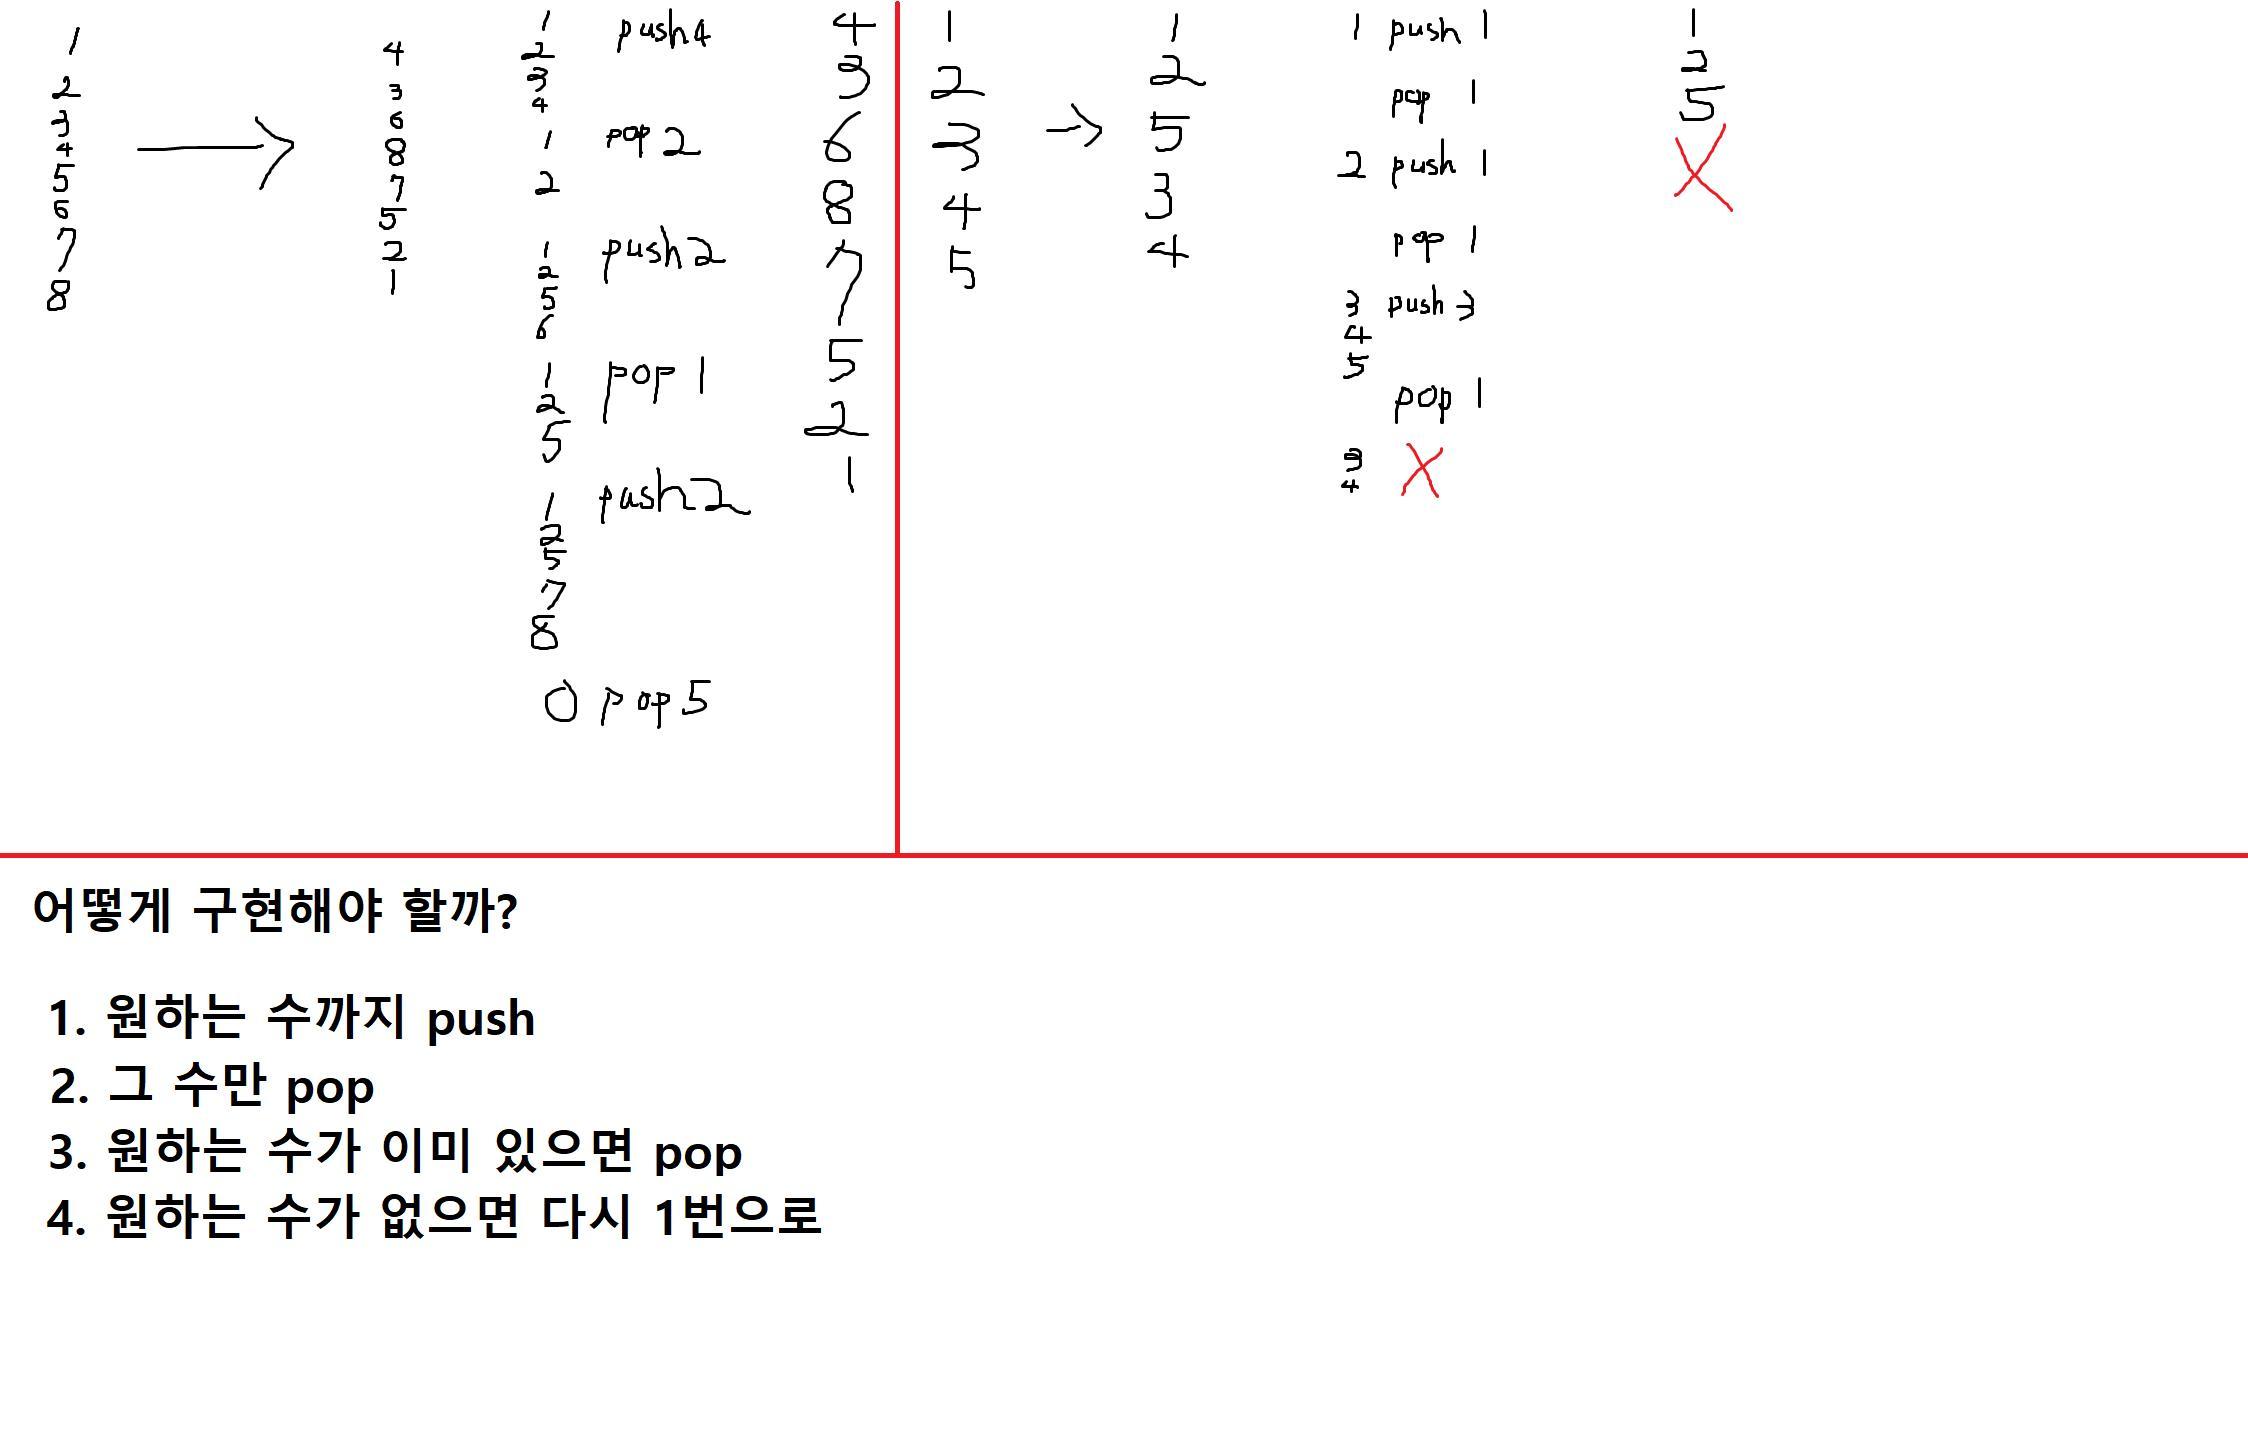 1
2
3
4
5
6
7
8
4
3
6
8
7
5
2
1
1
2
3
4
push4
1
2
pop 2
1
2
5
6
push2
1
2
5
pop 1
1
2
5
7
8
push2
0 pop5
4
3
6
8
7
5
2
1
1
2
3
4
5
1
2
5
3
4
1 push 1
pop 1
2 push 1
pop 1
3 push 3
4
5
pop 1
3
4
1
2
5
어떻게 구현해야 할까?
1. 원하는 수까지 push
2. 그 수만 pop
3. 원하는 수가 이미 있으면 pop
4. 원하는 수가 없으면 다시 1번으로